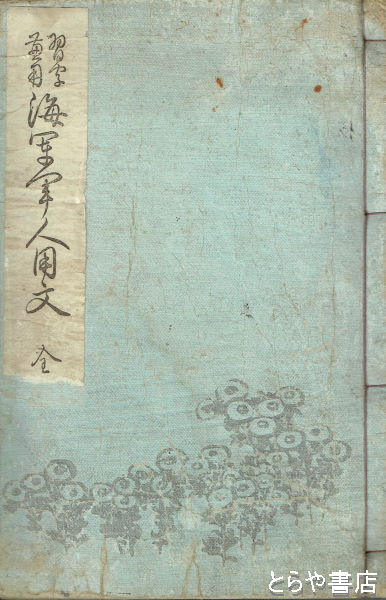 習字兼用 海軍軍人用文 全
とらや書店